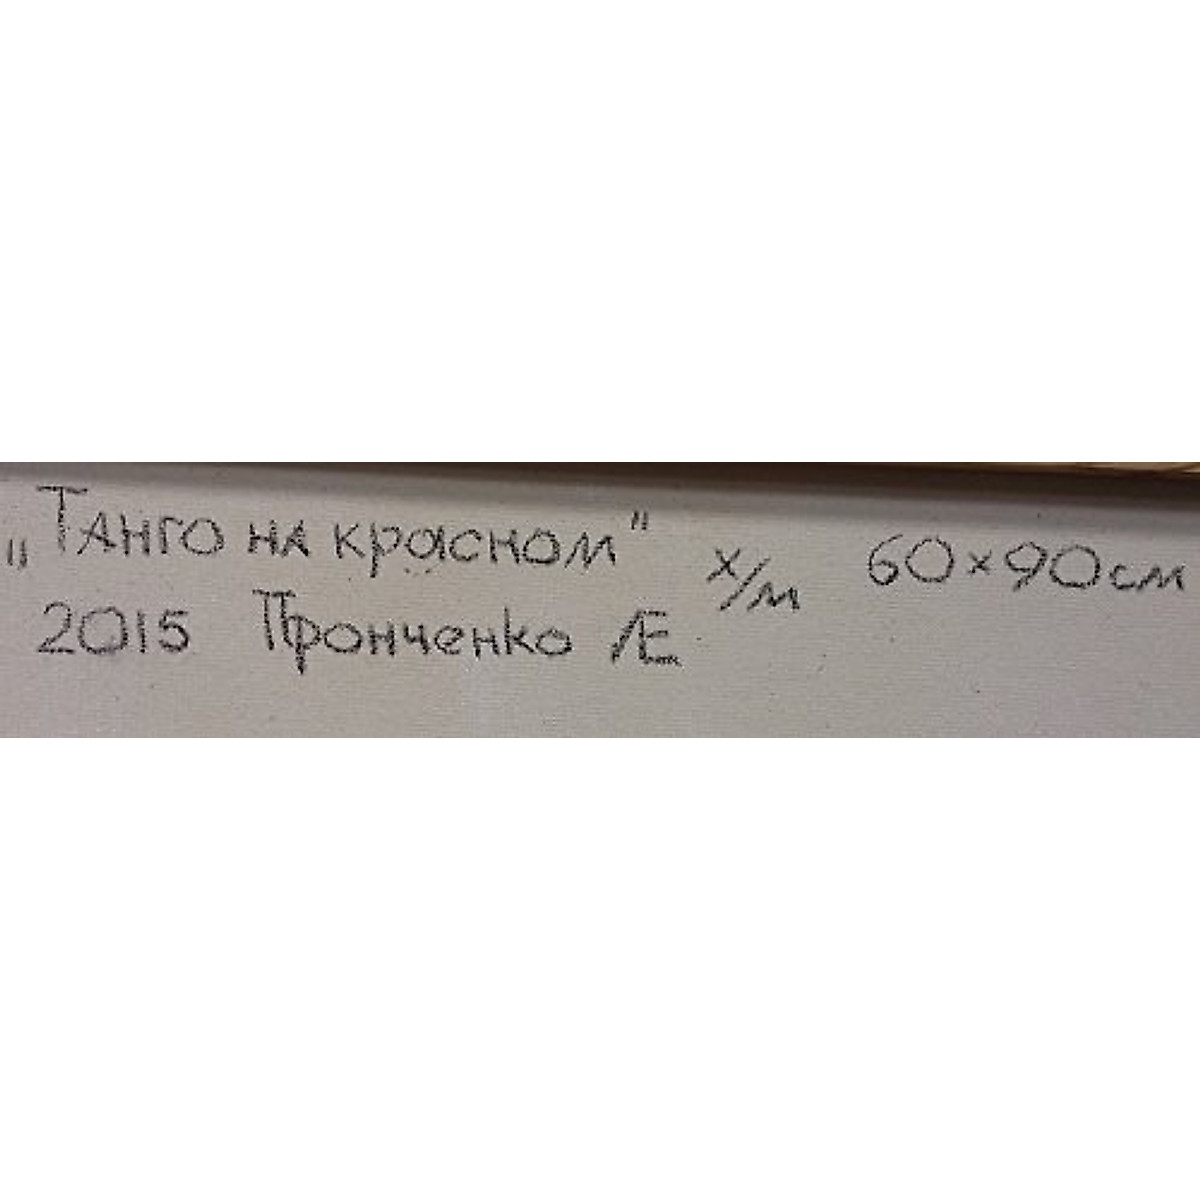 „Танго на красном" х/м 60×90см
2015 Пронченко ЛЕ